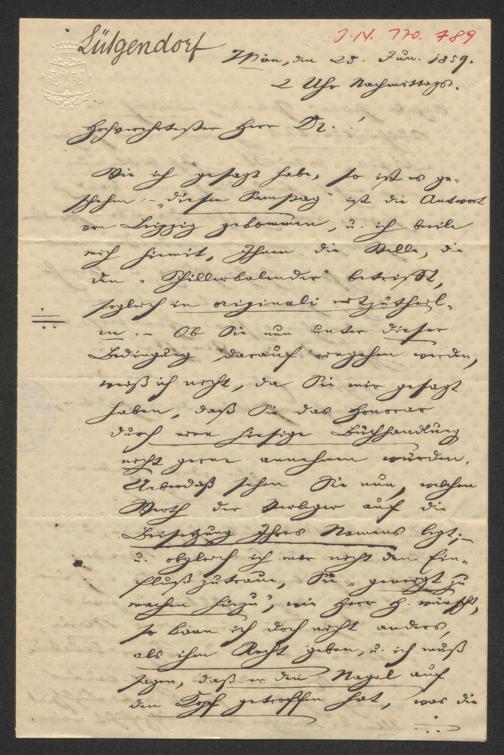 Lütgendorf
J.N. 170.789
Wien, den 25. Jun. 1859.
2 Uhr Nachmittags.
Hochverehrtester Herr Dr.!
Wie ich gesagt habe, so ist es ge-
schehen. – „diesen Samstag" ist die Antwort
von Leipzig gekommen, u. ich beeile
mich hiemit, Ihnen die Stelle, die
den „Schillerkalender" betrifft,
sogleich in originali mitzutheil-
en. – Ob Sie nun unter dieser
Bedingung darauf eingehen werden,
weiß ich nicht, da Sie mir gesagt
haben, daß Sie das Honorar
durch eine hiesige Buchhandlung
nicht gerne annehmen würden.
Ueberdaß sehen Sie nun, welchen
Werth der Verleger auf die
Beisetzung Ihres Namens legt; –
u. obgleich ich mir nicht den Ein-
fluß zutraue, Sie „geneigt zu
machen hiezu", wie Herr H. wünscht,
so kann ich doch nicht anders,
als ihm Recht geben, u. ich muß
sagen, daß er den Nagel auf
den Kopf getroffen hat, was die